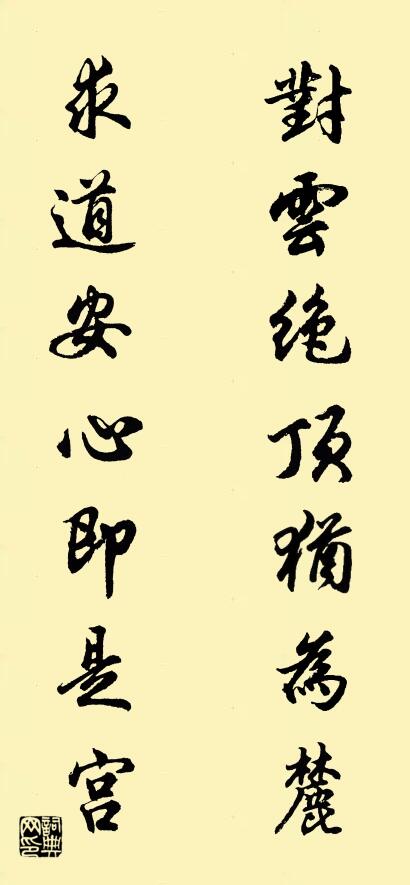 對雲絶頂猶為麓
求道安心即是宫
詞典網印